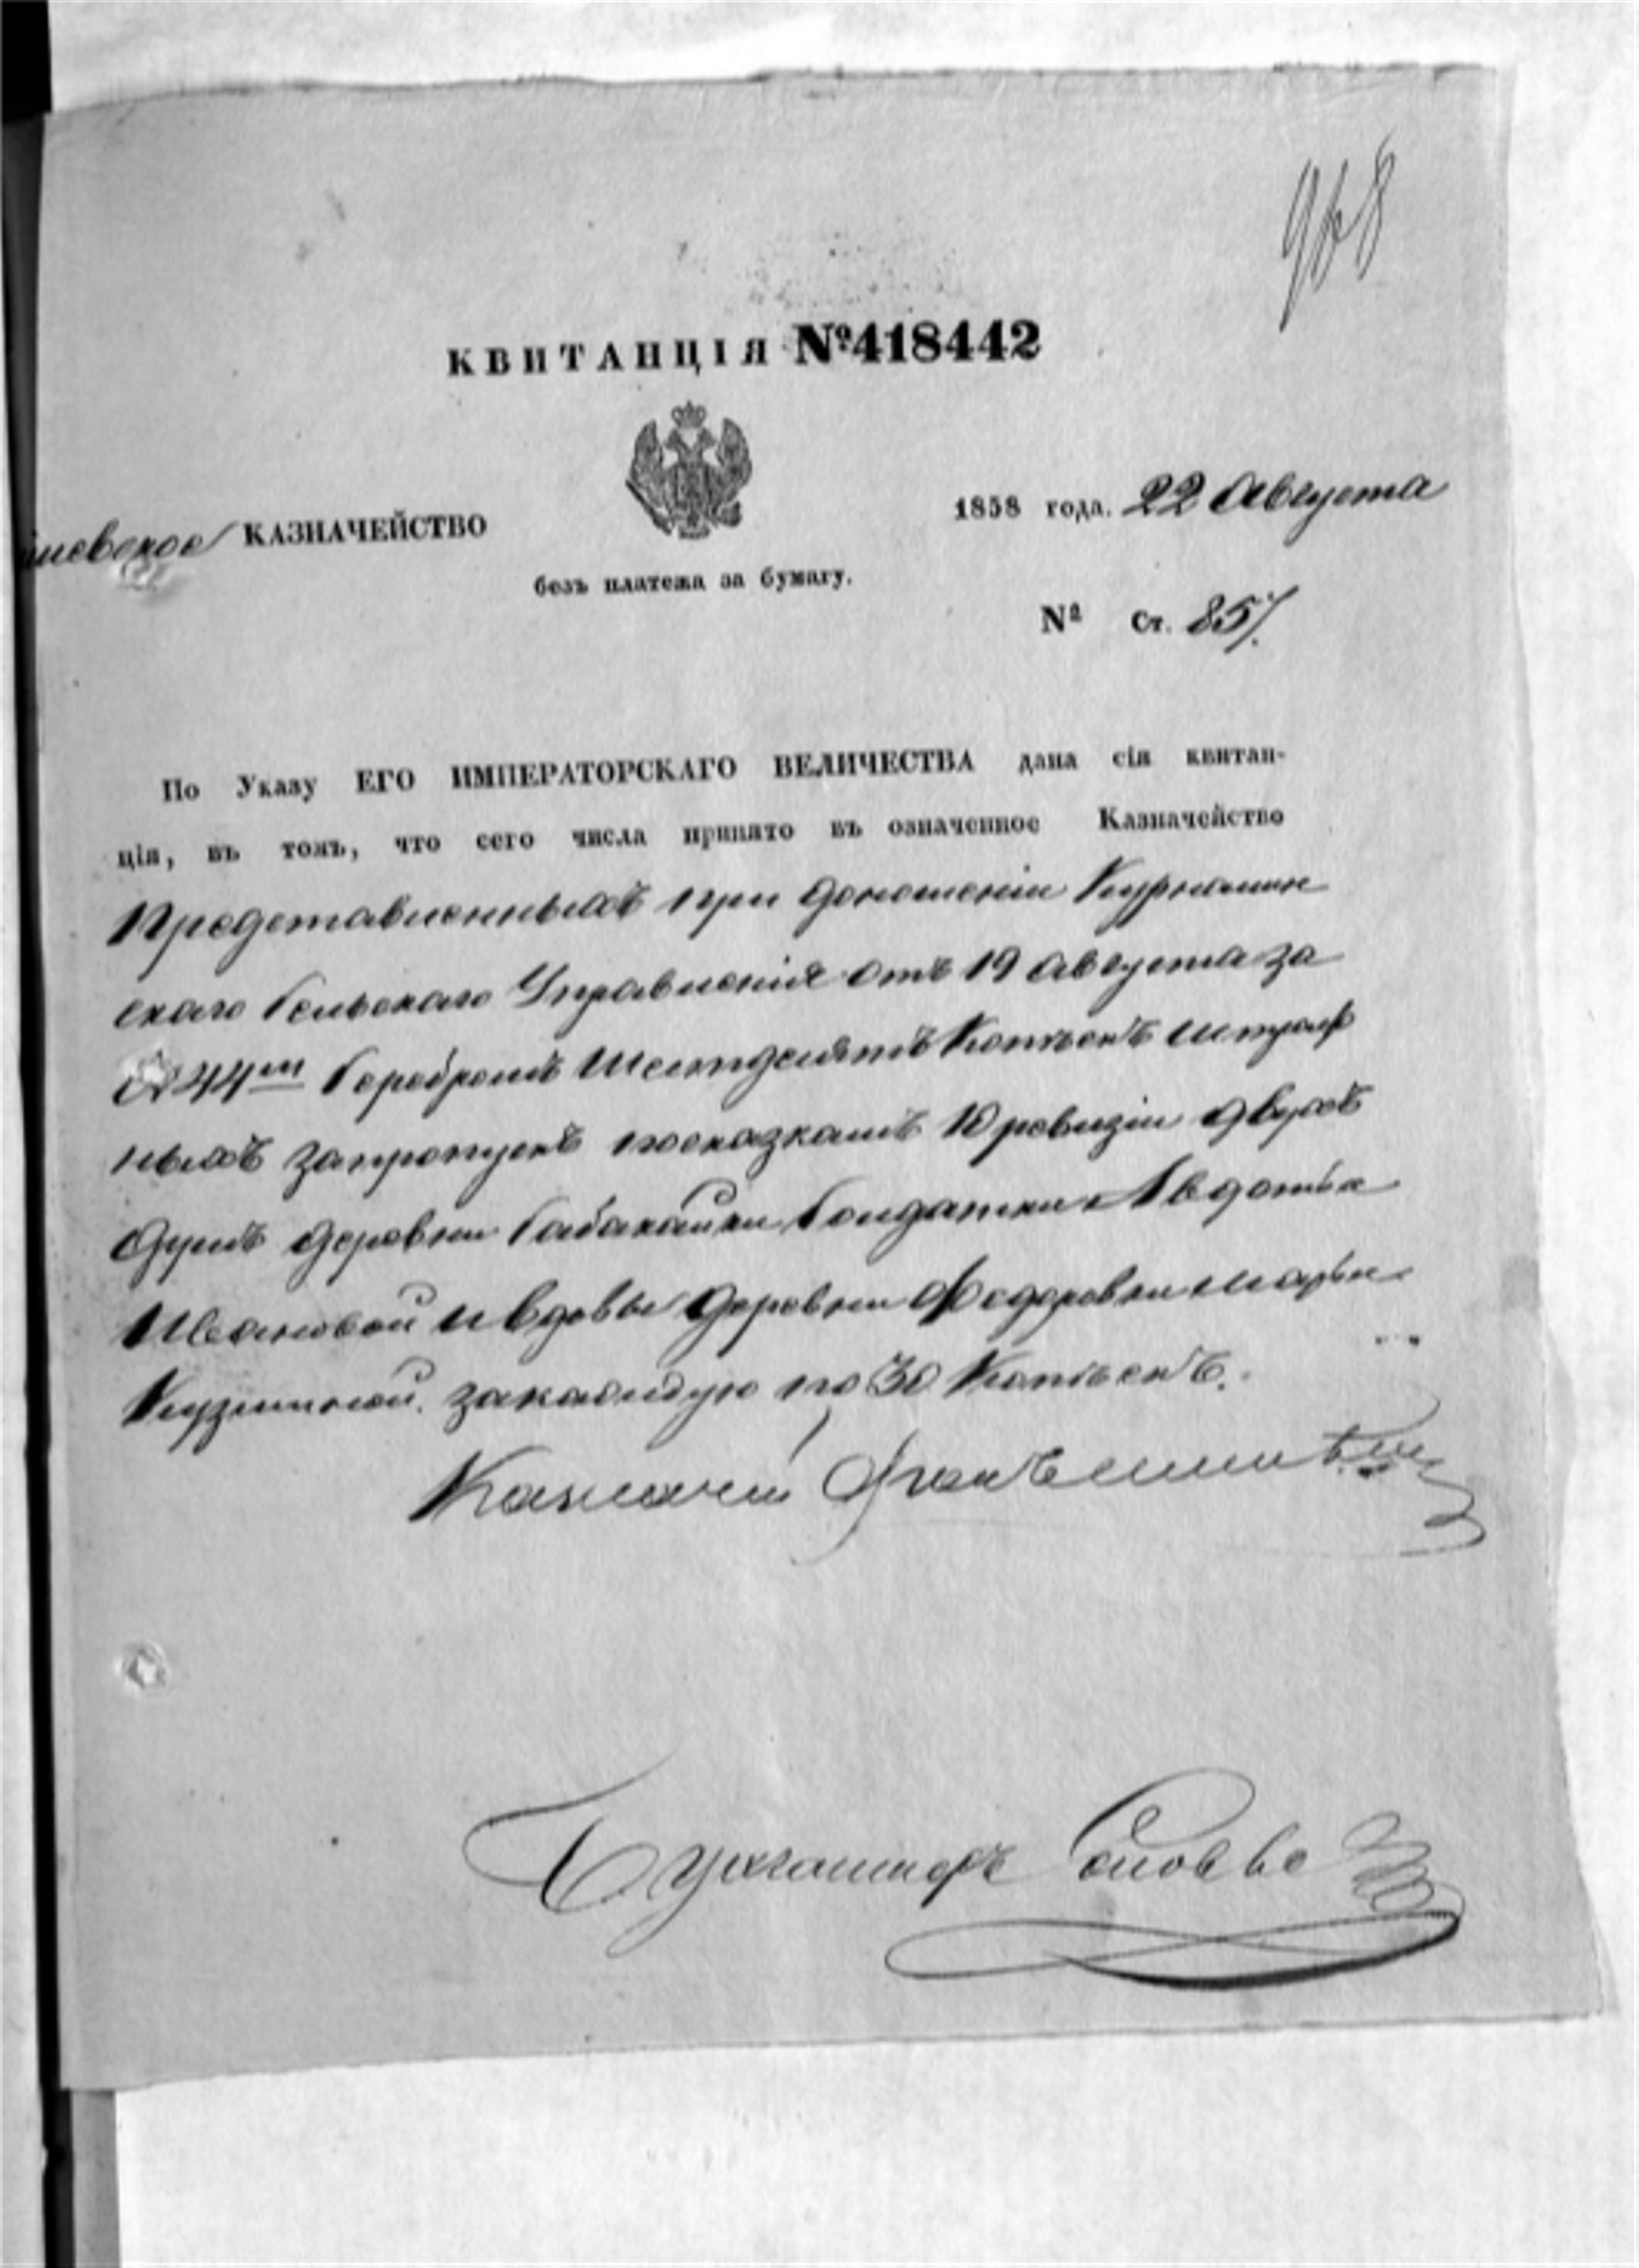 КВИТАНЦІЯ №418442
КАЗНАЧЕЙСТВО
1858 года. 22 Августа
безъ платежа за бумагу.
№ Ст. 857.
По Указу ЕГО ИМПЕРАТОРСКАГО ВЕЛИЧЕСТВА дана сія квитан-
ція, въ томъ, что сего числа принято въ означенное Казначейство
Представленныхъ при доношеніи
скаго Сельскаго Управленія отъ 19 Августа за
№ 44 Серебромъ Шестдесятъ Копѣекъ штраф
ныхъ запропускъ посказкамъ 10 ревизіи двухъ
душъ деревни Солдатки Авдотьи
Ивановой и вдовы деревни Федоровки Марьи
Кузминой. закаждую по 30 Копѣекъ.
Казначей
Бухгалтеръ Соловье